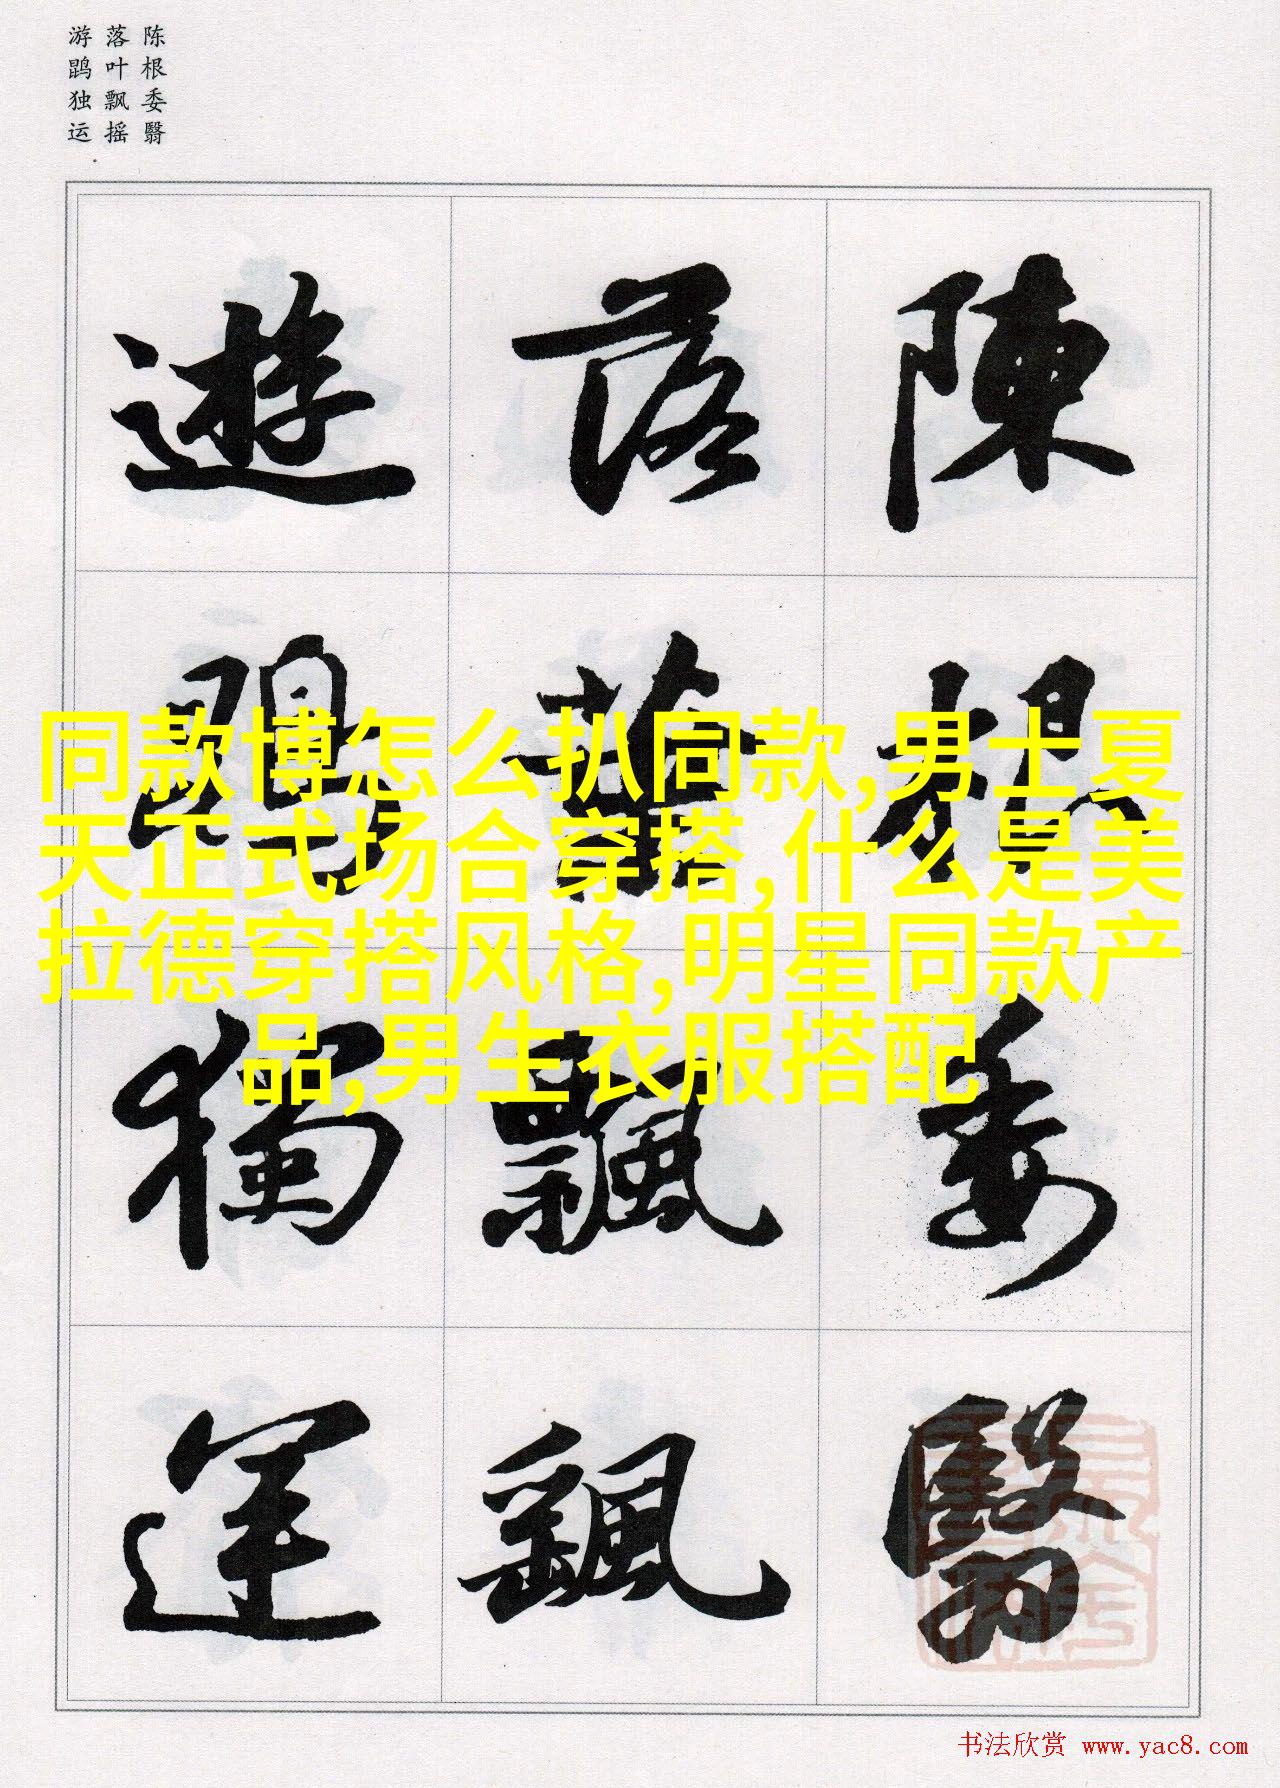 陈根委翳
落叶飘摇
游鹍独运
陳根委翳
落葉飄颻
遊鵾獨運
同款博怎么扒同款,男士夏
天正式场合穿搭,什么是美
拉德穿搭风格,明星同款产
品,男生衣服搭配
书法欣赏 www.yac8.com